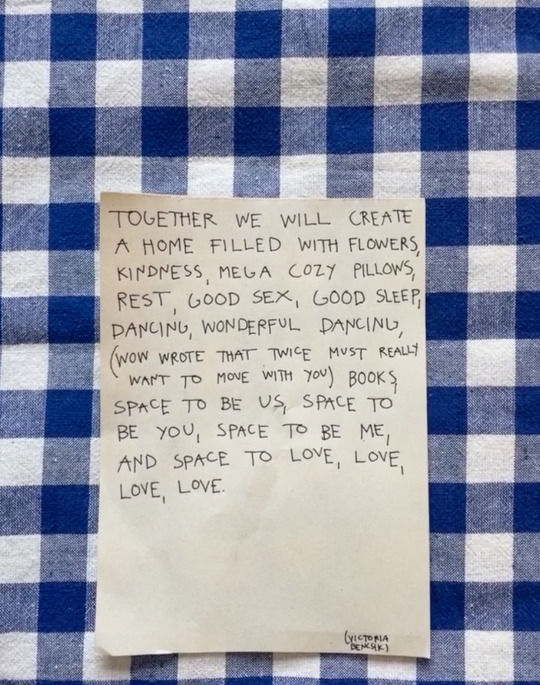 TOGETHER WE WILL CREATE
A HOME FILLED WITH FLOWERS,
KINDNESS, MEGA COZY PILLOWS,
REST, GOOD SEX, GOOD SLEEP,
DANCING, WONDERFUL DANCING,
(WOW WROTE THAT TWICE MUST REALLY
WANT TO MOVE WITH YOU) BOOKS,
SPACE TO BE US, SPACE TO
BE YOU, SPACE TO BE ME,
AND SPACE TO LOVE, LOVE,
LOVE, LOVE.
(VICTORIA